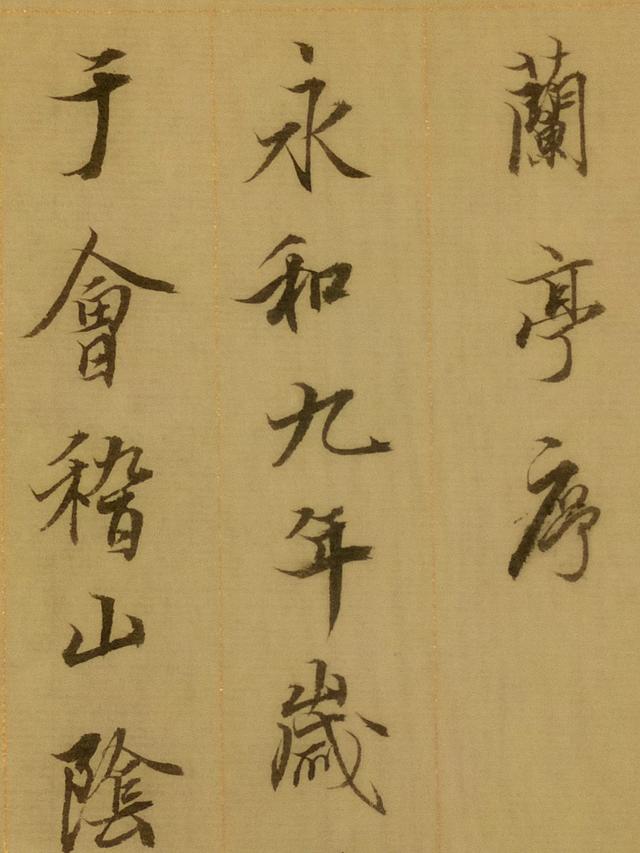 蘭亭序
永和九年歲
于會稽山陰